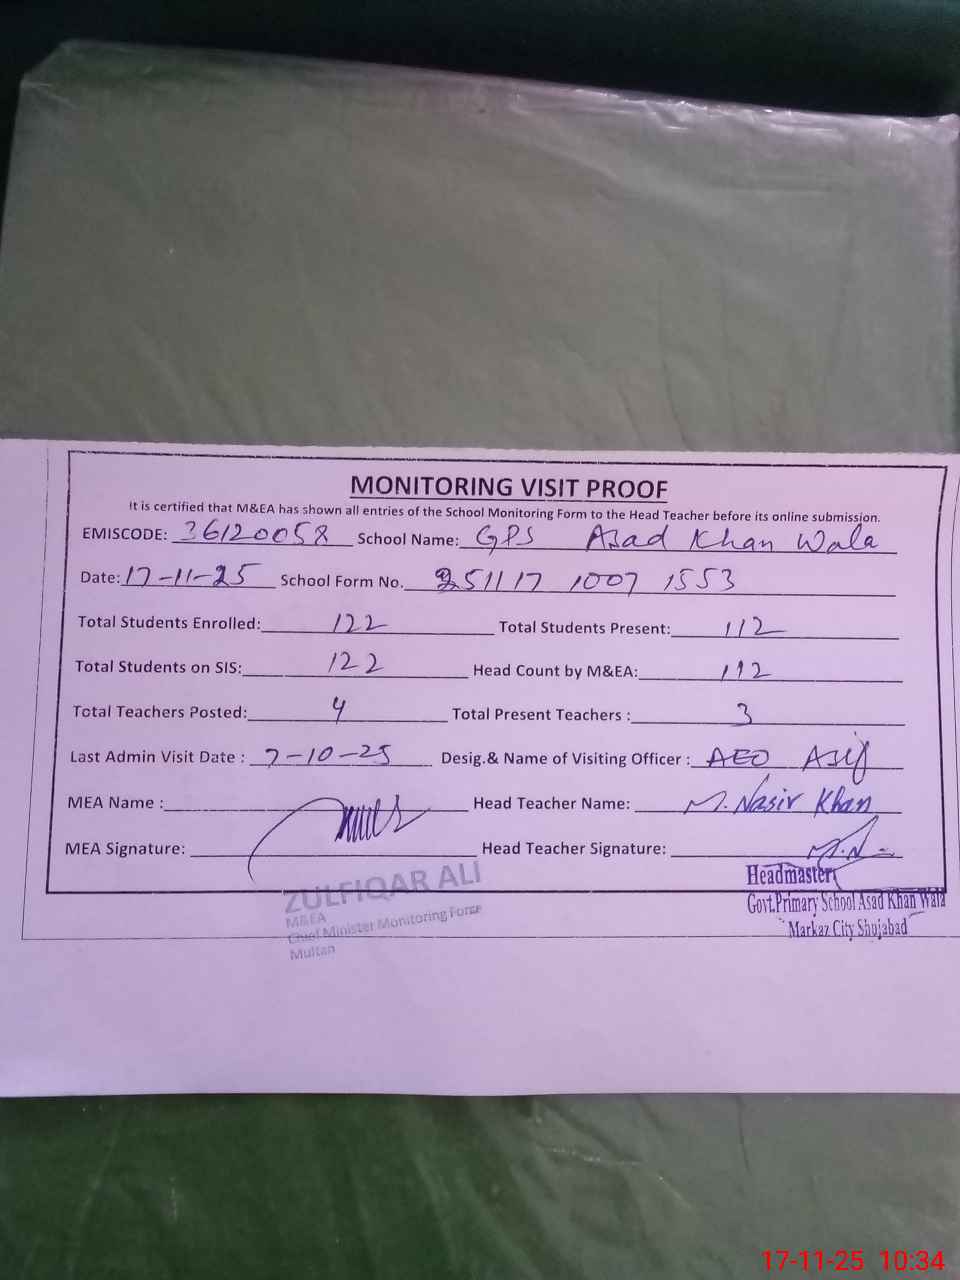 MONITORING VISIT PROOF
It is certified that M&EA has shown all entries of the School Monitoring Form to the Head Teacher before its online submission.
EMISCODE: 36120058 School Name: GPS Asad Khan Wala
Date: 17-11-25 School Form No. 251117 1007 1553
Total Students Enrolled: 122 Total Students Present: 112
Total Students on SIS: 122 Head Count by M&EA: 112
Total Teachers Posted: 4 Total Present Teachers : 3
Last Admin Visit Date : 7-10-25 Desig.& Name of Visiting Officer : AEO Asif
MEA Name : Head Teacher Name: M. Nasir Khan
MEA Signature: Head Teacher Signature: M.N
ZULFIQAR ALI
M&EA
Chief Minister Monitoring Force
Multan
Headmaster
Govt.Primary School Asad Khan Wala
Markaz City Shujabad
17-11-25 10:34